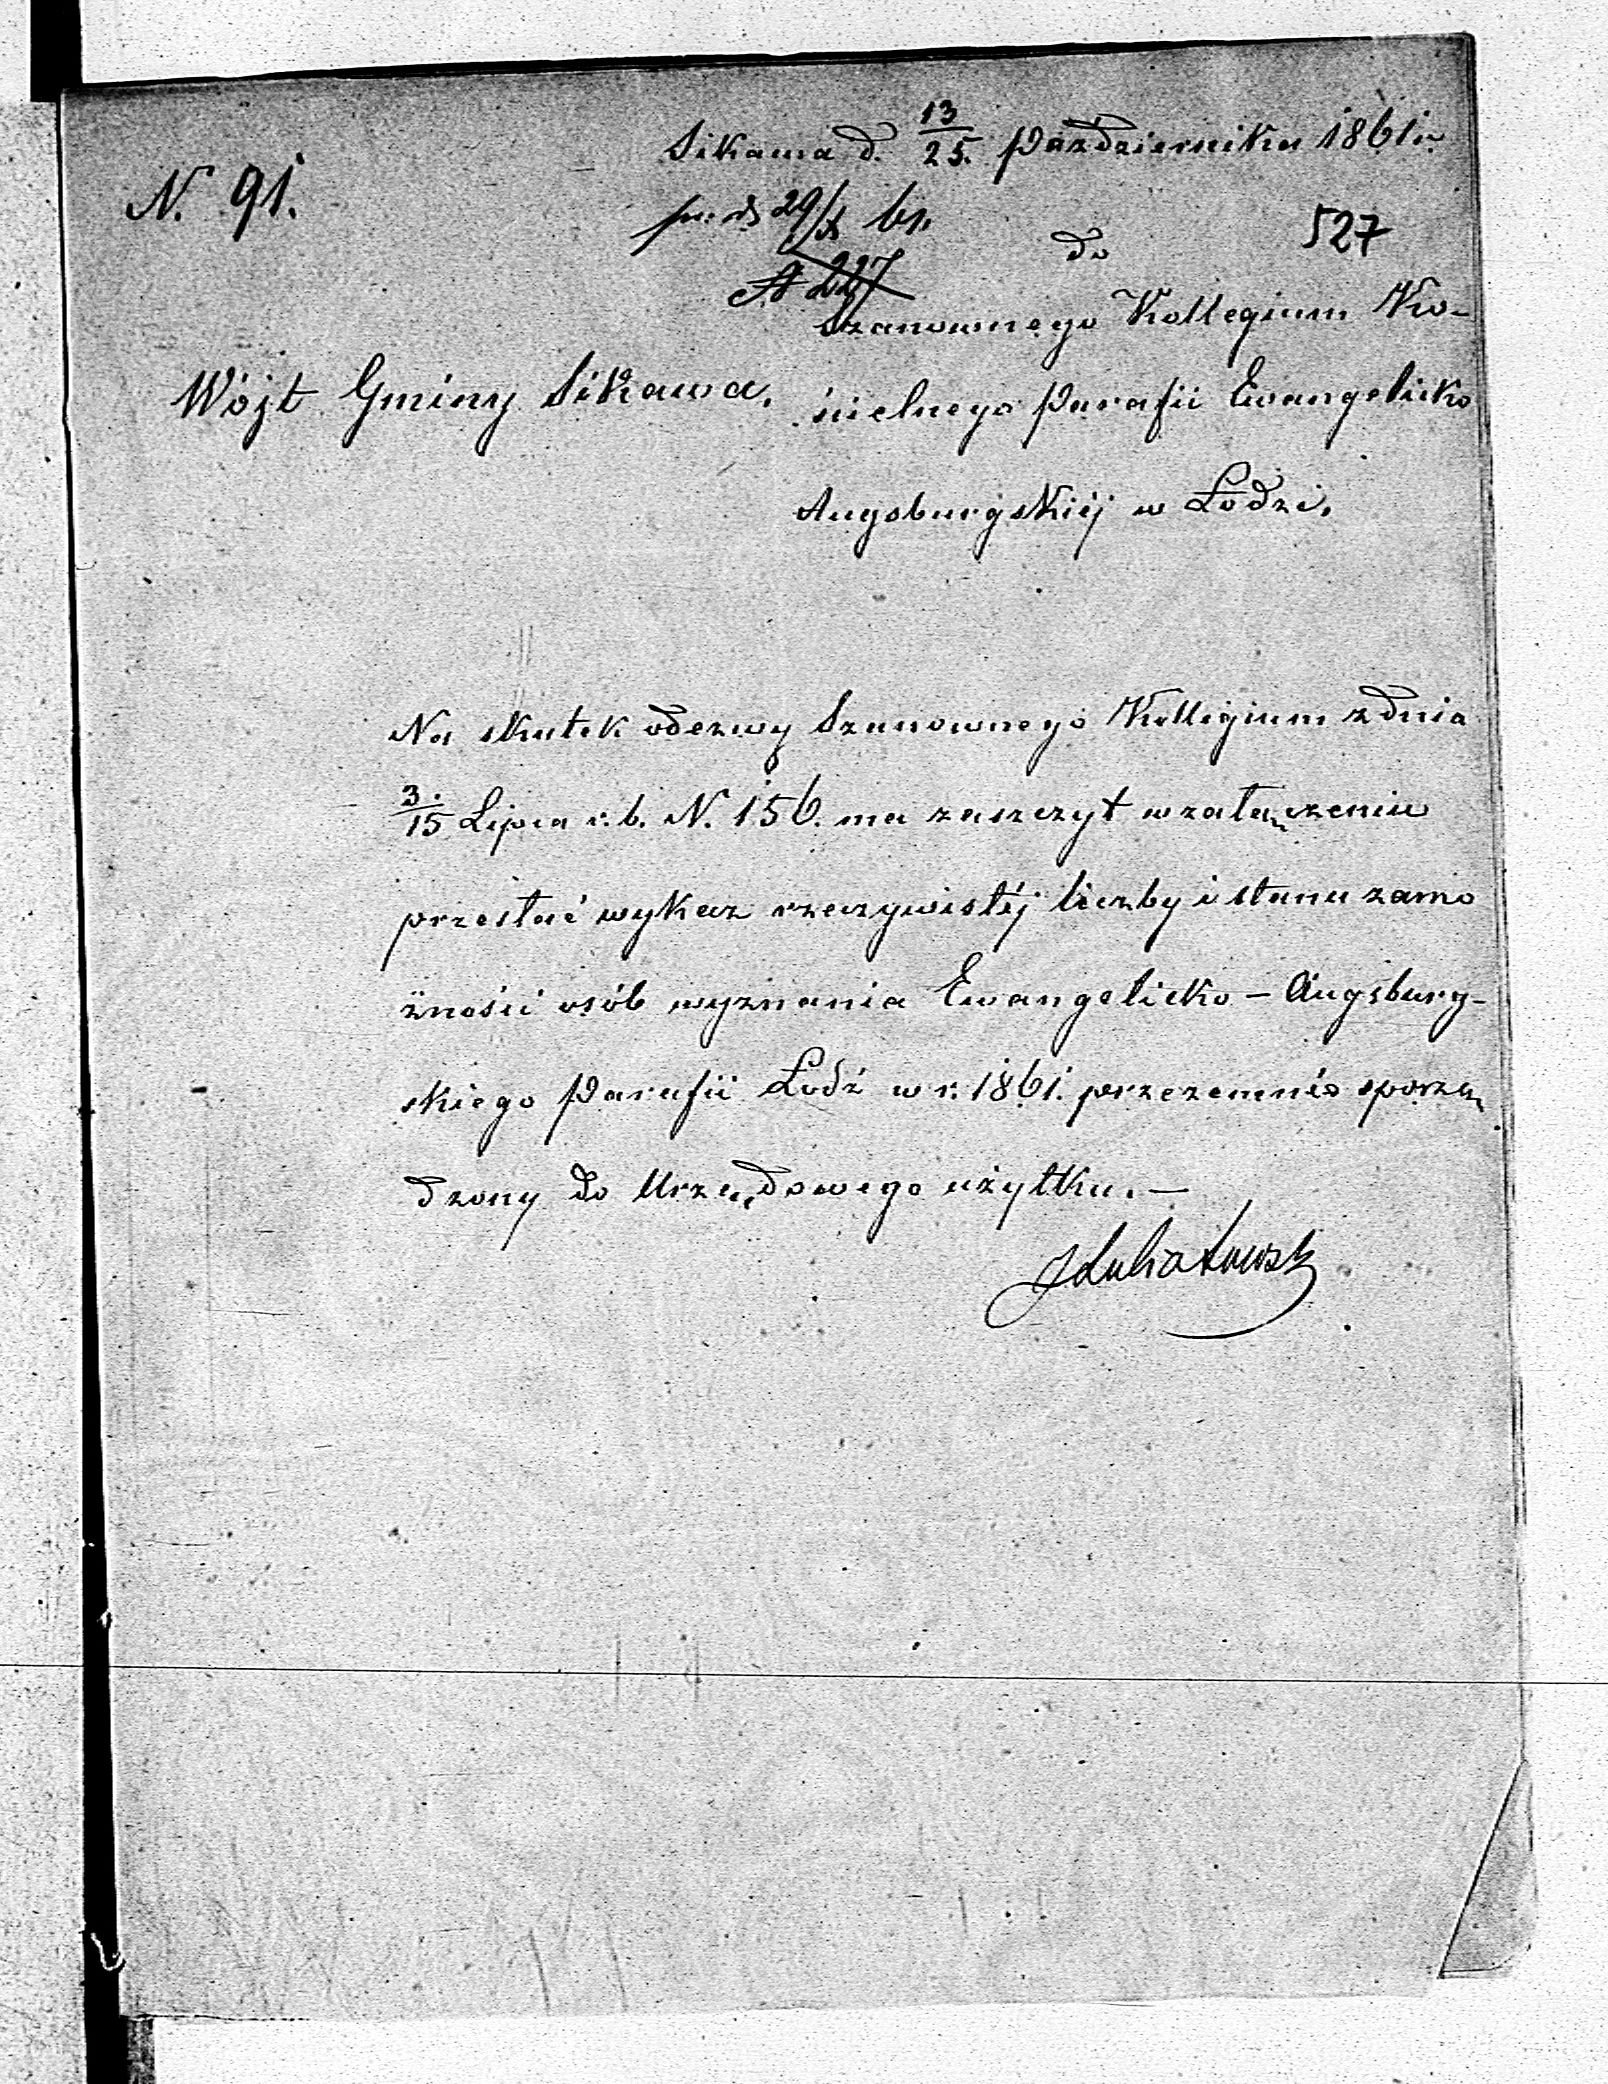 Sikawa d. 13/25. Października 1861 r.
N. 91.
pr. d. 29/X 61.
527
do
N 227
Szanownego Kollegium Ko-
Wójt Gminy Sikawa.
ścielnego Parafii Ewangelicko
Augsburgskiéj w Łodzi.
Na skutek odezwy Szanownego Kollegium z dnia
3/15 Lipca r. b. N. 156. ma zaszczyt w załączeniu
przesłać wykaz rzeczywistéj liczby i stanu zamo
żności osób wyznania Ewangelicko - Augsburg-
skiego Parafii Łodź w r. 1861. przezemnie sporzą
dzony do Urzędowego użytku. —